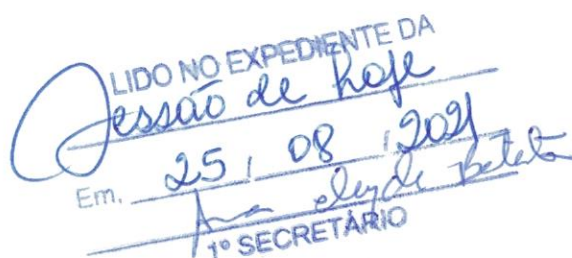 LIDO NO EXPEDIENTE DA
Sessão de hoje
Em, 25 / 08 / 2021
Ana
1º SECRETÁRIO